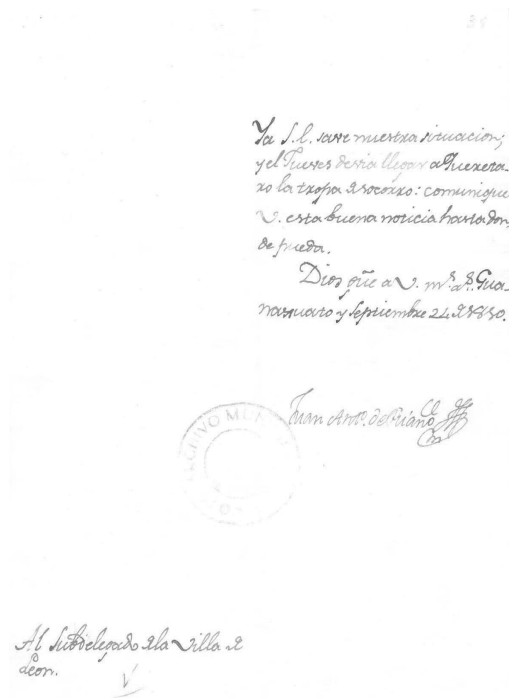 38
Ya S.E. save nuestra situacion;
y el Jueves devia llegar a Quereta-
ro la tropa de socorro: comunique
V. esta buena noticia hasta don-
de pueda.
Dios gũe a V. ms. as. Gua-
naxuato y Septiembre 24 de 1810.
Juan Anto. de Riaño
ARCHIVO MUN
Al Subdelegado de la Villa de
Leon.